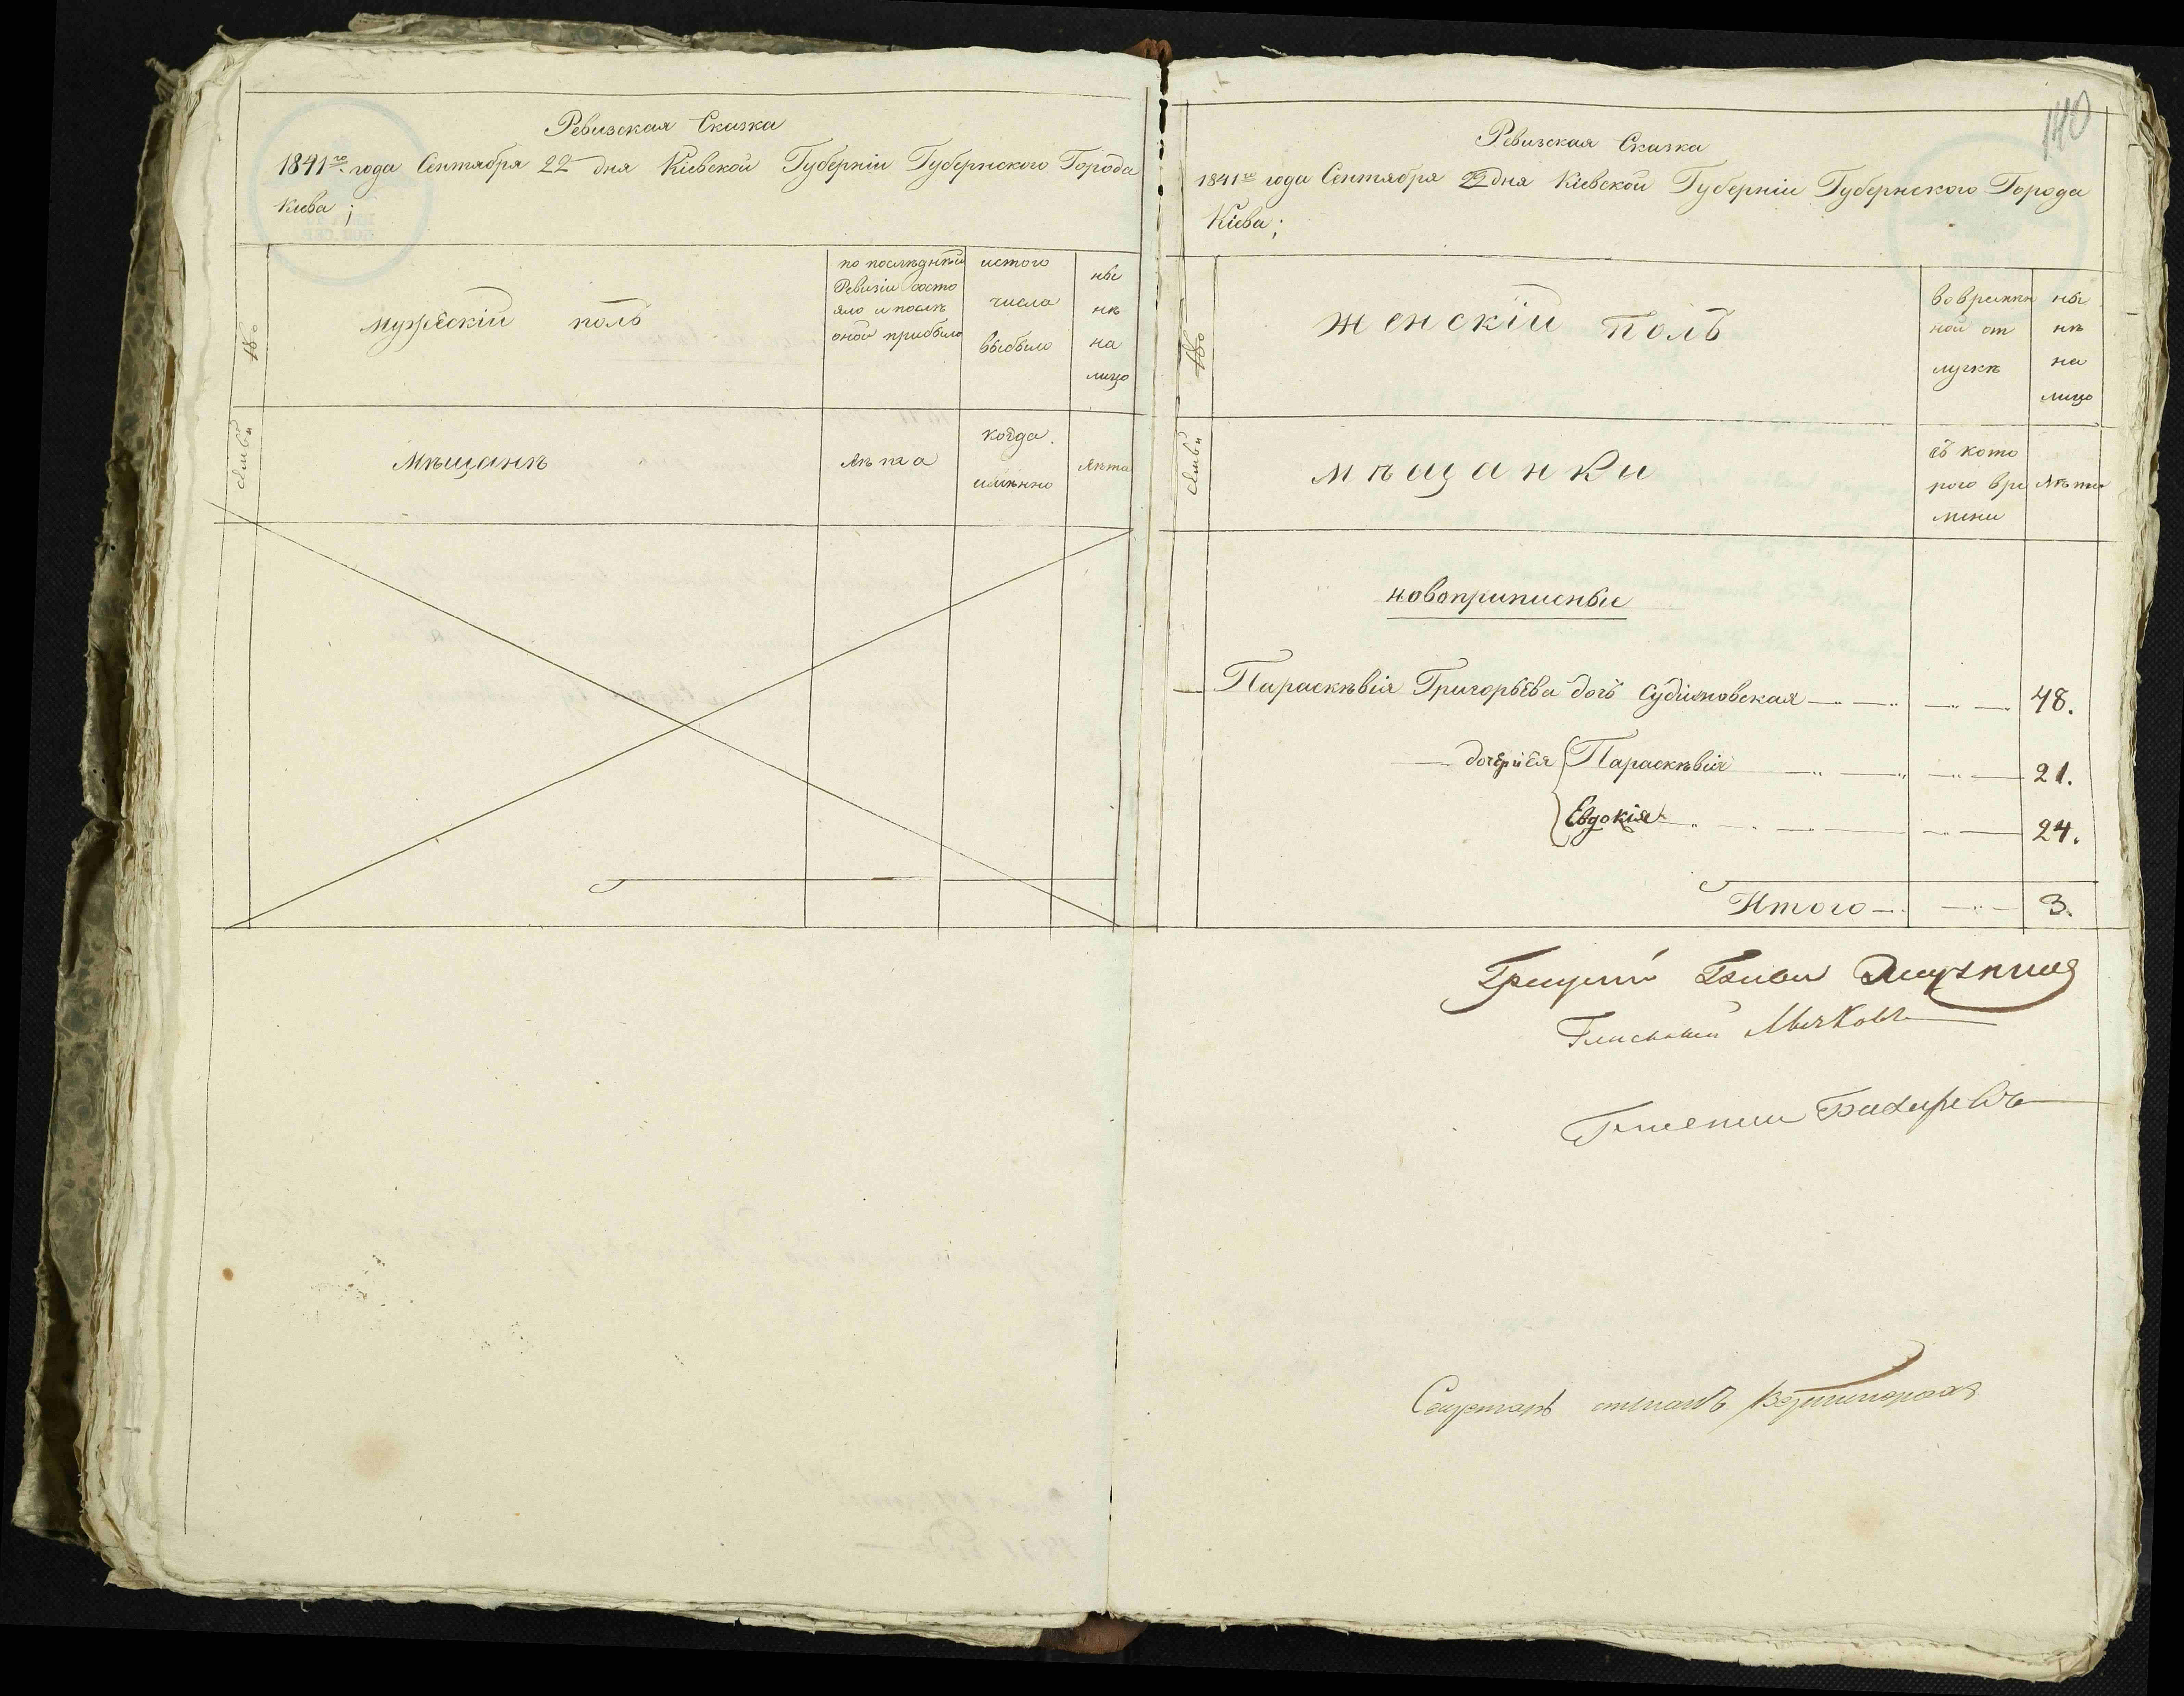 Ревизская Сказка
1841го года Сентября 22 дня Кіевской Губерніи Губернского Города
Кіева;
№
мужескій полъ
по послѣдней
Ревизіи состо
яло и послѣ
оной прибыло
изтого
числа
выбыло
ны
нѣ
на
лицо
семьи
Мѣщанѣ
лѣта
когда
именно
лѣта
140
Ревизская Сказка
1841го года Сентября 22 дня Кіевской Губерніи Губернского Города
Кіева;
№
женскій полъ
во времян
ной от
лучкѣ
ны
нѣ
на
лицо
семьи
мѣщанки
съ кото
рого вре
мени
лѣта
новоприписные
Параскѣвія Григорьева дочь 48.
дочери Ея Параскѣвія 21.
Евдокія 24.
Итого 3.
Гласный
Гласный
Секретарь